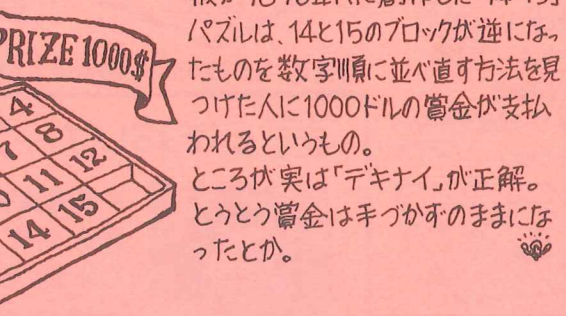 PRIZE 1000$
4
7 8
11 12
14 15
パズルは、14と15のブロックが逆になっ
たものを数字順に並べ直す方法を見
つけた人に1000ドルの賞金が支払
われるというもの。
ところが実は「デキナイ」が正解。
とうとう賞金は手づかずのままにな
ったとか。